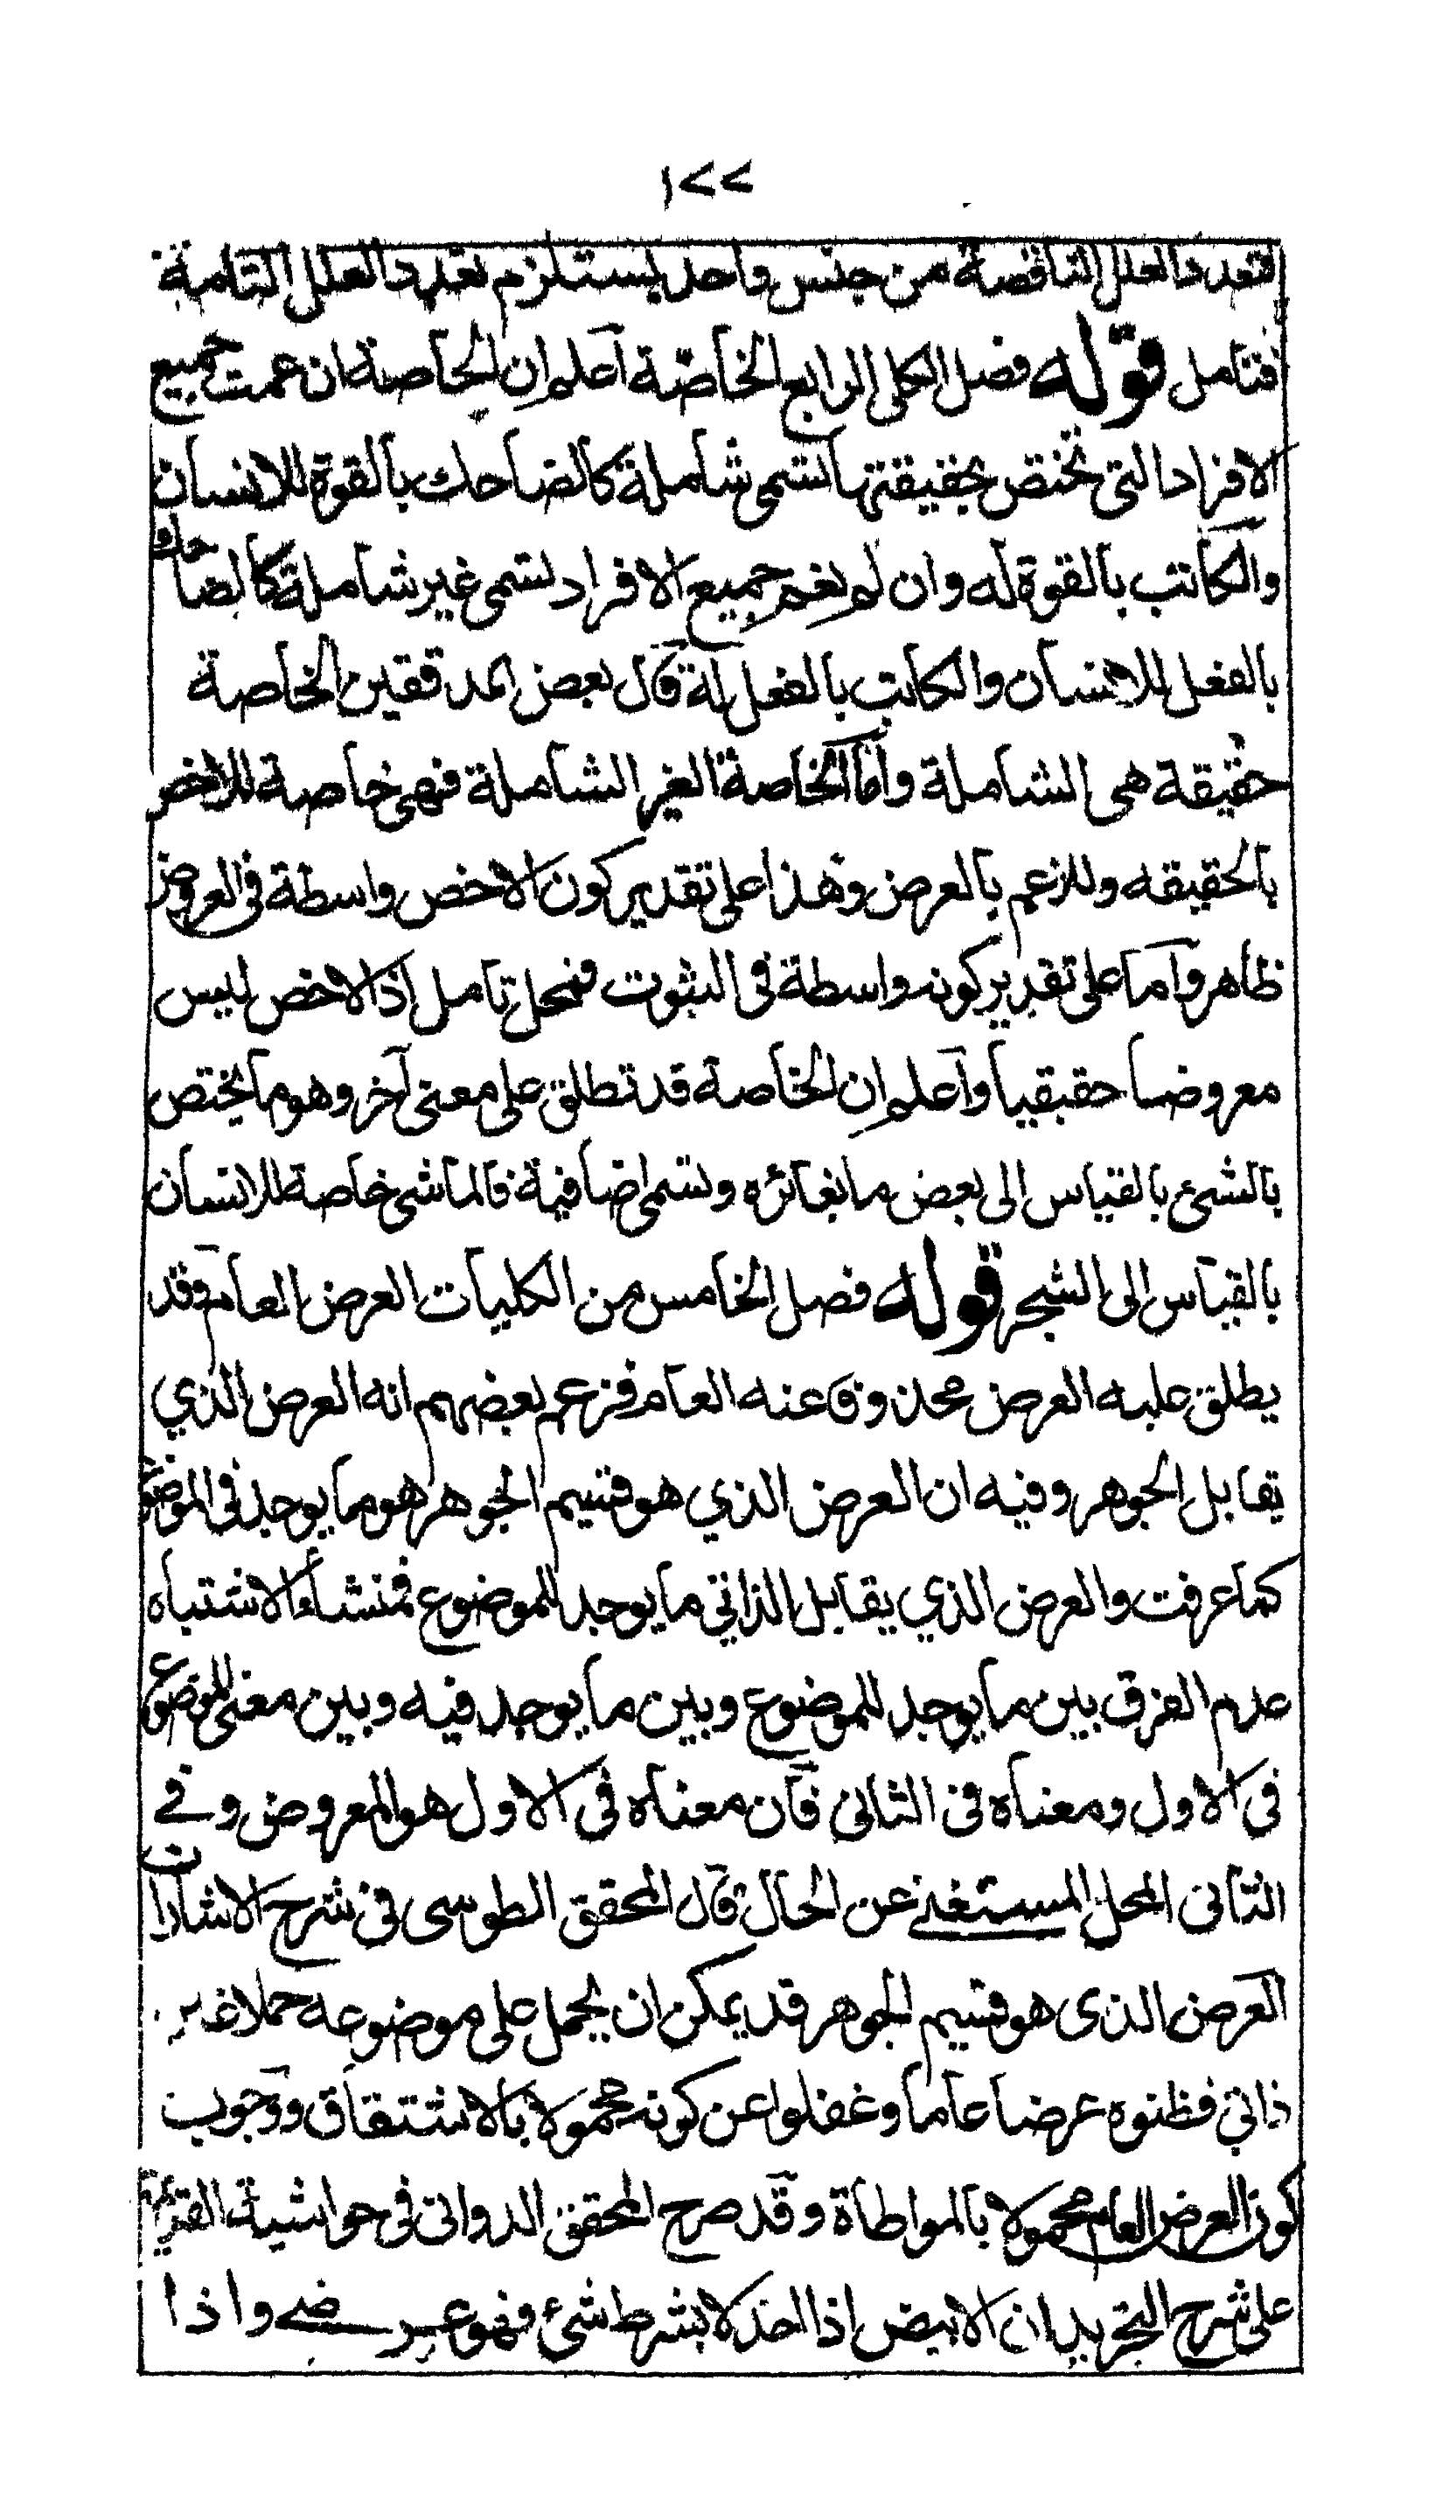 ١٢٢
فتعدد العلل الناقصة من جنس واحد يستلزم تعدد العلل التامة
فتامل قوله فصل الكلى الرابع الخاصة اعلم ان الخاصة ان عمت جميع
الافراد التى تختص بحقيقتها تسمى شاملة كالضاحك بالقوة للانسان
والكاتب بالقوة له وان لم يعم جميع الافراد تسمى غير شاملة كالضاحك
بالفعل للانسان والكاتب بالفعل له قال بعض المدققين الخاصة
حقيقة هى الشاملة واما الخاصة الغير الشاملة فهى خاصة للاخص
بالحقيقه وللاعم بالعرض وهذا على تقدير كون الاخص واسطة فى العروض
ظاهر واما على تقدير كونه واسطة فى الثبوت فمحل تامل اذ الاخص ليس
معروضا حقيقيا واعلم ان الخاصة قد تطلق على معنى آخر وهو ما يختص
بالشئ بالقياس الى بعض ما يغائره وتسمى اضافية فالماشى خاصة للانسان
بالقياس الى الشجر قوله فصل الخامس من الكليات العرض العام وقد
يطلق عليه العرض محذوفا عنه العام فزعم بعضهم انه العرض الذي
يقابل الجوهر وفيه ان العرض الذي هو قسيم الجوهر هو ما يوجد فى الموضوع
كما عرفت والعرض الذي يقابل الذاتي ما يوجد للموضوع فمنشأ الاشتباه
عدم الفرق بين ما يوجد للموضوع وبين ما يوجد فيه وبين معنى الموضوع
فى الاول ومعناه فى الثانى فان معناه فى الاول هو المعروض وفے
الثانى المحل المستغنے عن الحال قال المحقق الطوسى فى شرح الاشارات
العرض الذى هو قسيم الجوهر قد يمكن ان يحمل على موضوعه حملا غير
ذاتي فظنوه عرضا عاما وغفلوا عن كونه محمولا بالاشتقاق ووجوب
كون العرض العام محمولا بالمواطاة وقد صرح المحقق الدوانى فى حواشية القديمة
على شرح التجريد ان الابيض اذا اخذ لا بشرط شئ فهو عرضے واذا